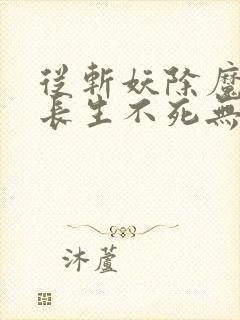 從斬妖除魔
長生不死無
沐蘆